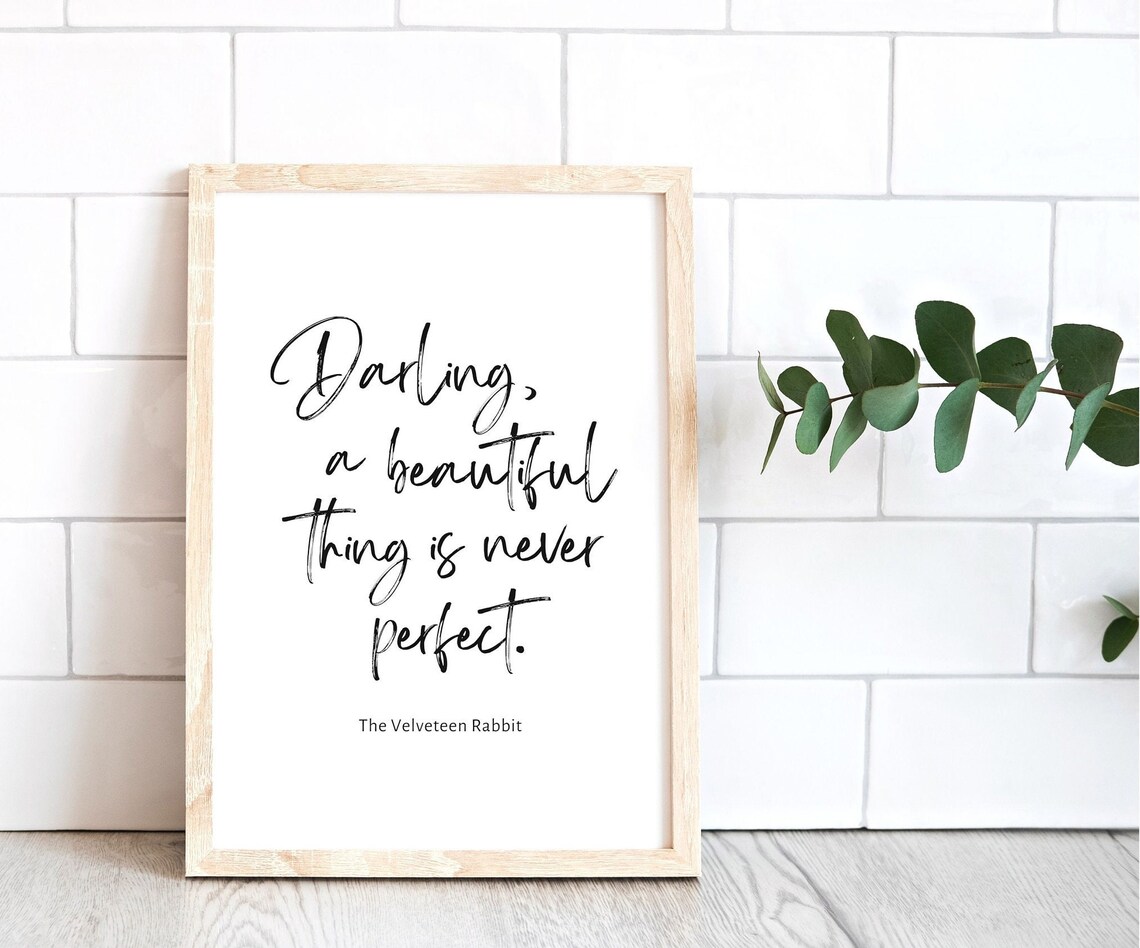 Darling,
a beautiful
thing is never
perfect.
The Velveteen Rabbit